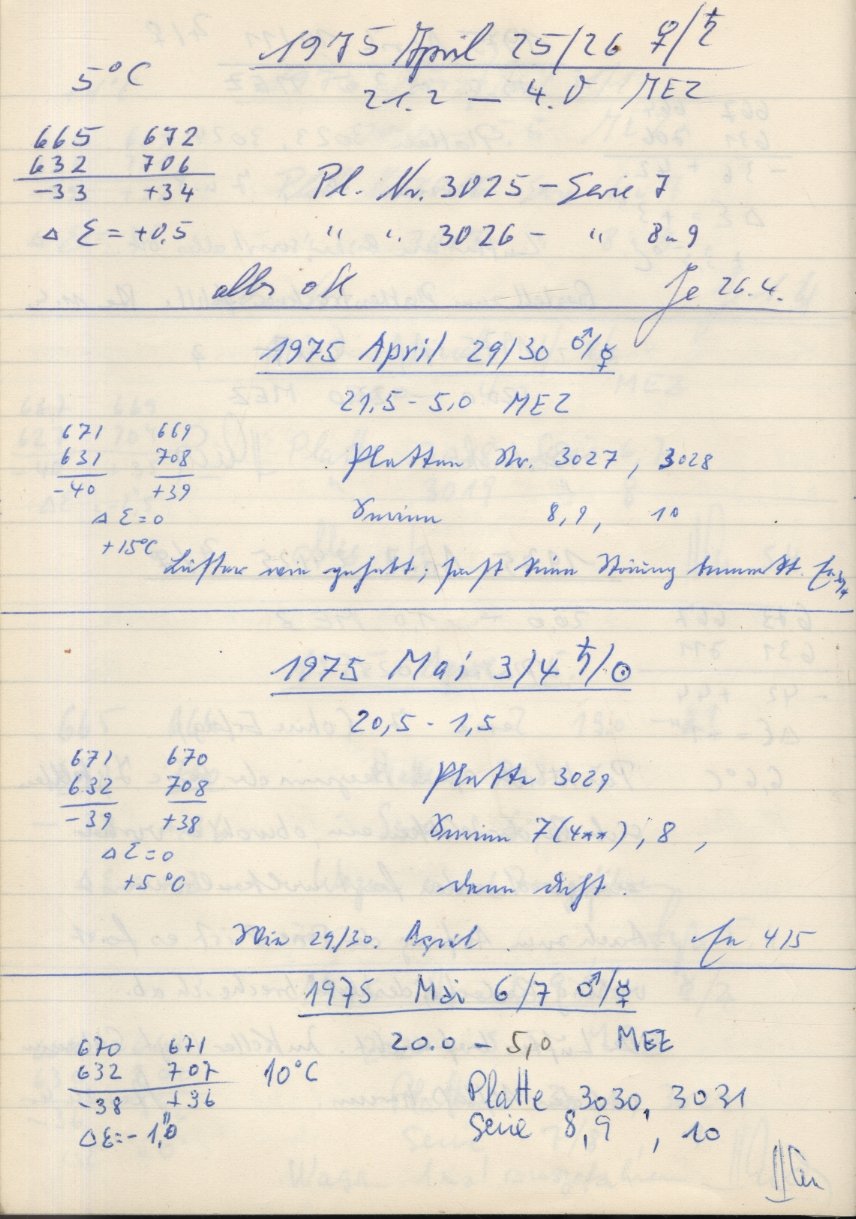 1975 April 25/26 ♀/♄
5°C
21.2 — 4.0 MEZ
665 672
632 706
-33 +34
Pl. Nr. 3025 - Serie 7
Δ Σ = +0,5
" " 3026 - " 8 u 9
alles ok Je 26.4.
1975 April 29/30 ♂/☿
21,5 - 5,0 MEZ
671 669
631 708
-40 +39
Platten Nr. 3027, 3028
Serien 8, 9, 10
Δ Σ = 0
+15°C
Lüfter wie gehabt; sonst keine Störung bemerkt.
1975 Mai 3/4 ♄/☉
20,5 - 1,5
671 670
632 708
-39 +38
Platte 3029
Serien 7(4xx), 8,
Δ Σ = 0
+5°C
dann dicht.
Wie 29/30. April. 4/5
1975 Mai 6/7 ♂/☿
20.0 - 5,0 MEZ
670 671
632 707
-38 +36
10°C
Platte 3030, 3031
Serie 8,9, 10
Δ Σ = - 1,0